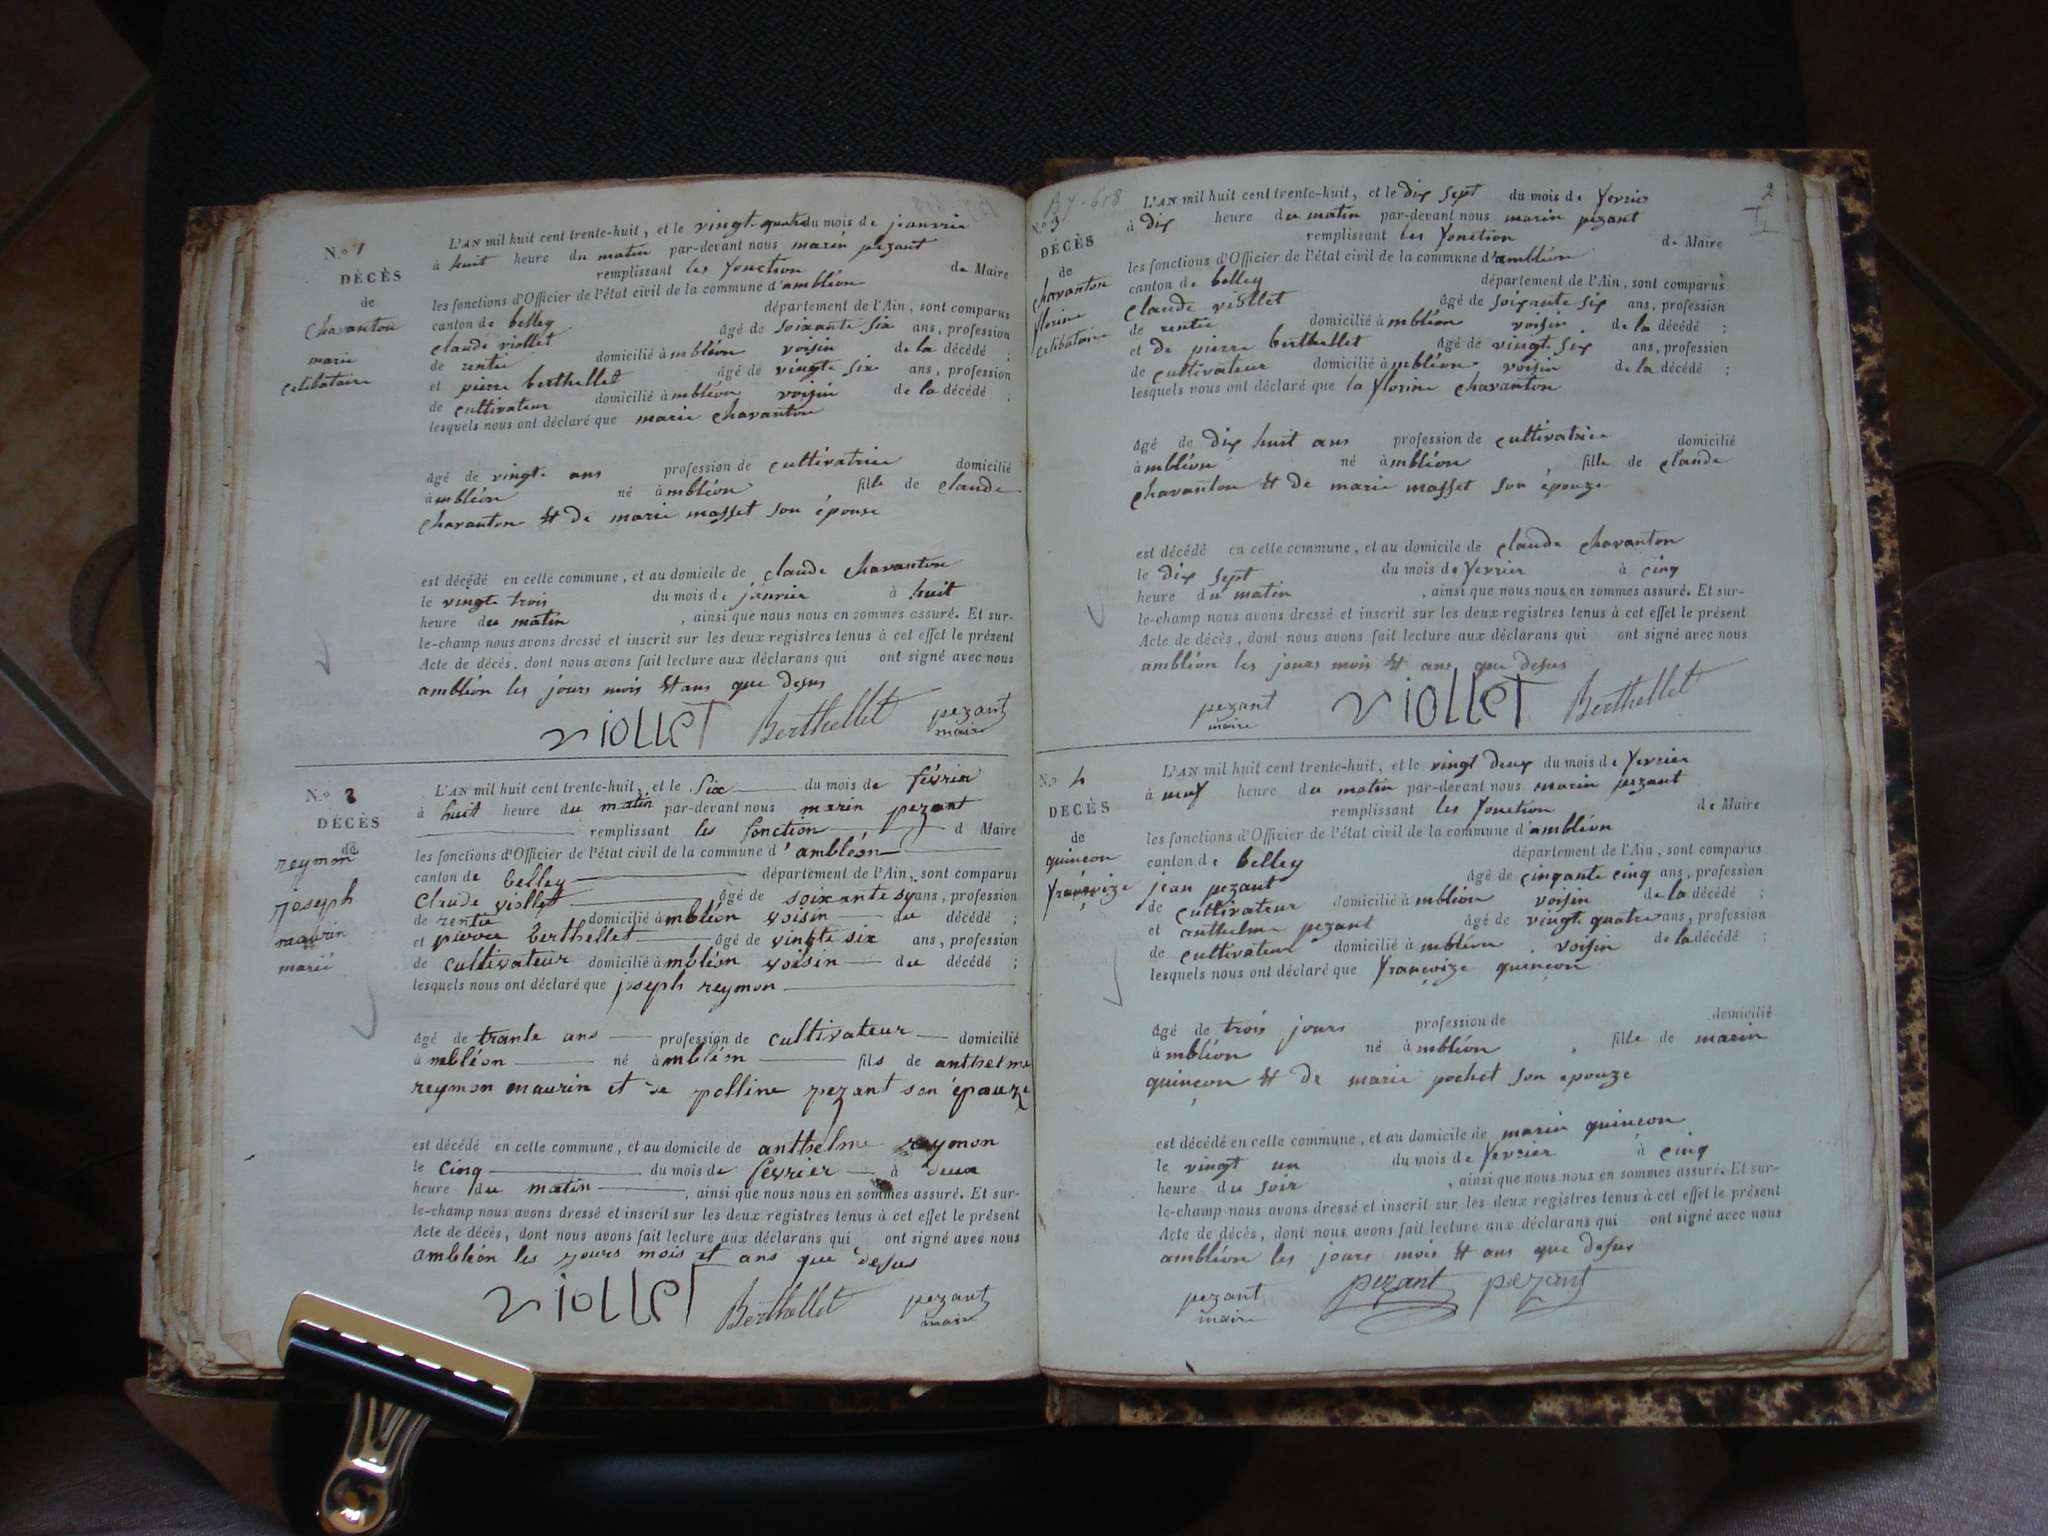 N.° 1
DÉCÈS
de
chavanton
marie
celibataire
L'AN mil huit cent trente-huit, et le vingt quatre du mois de janvrier
à huit heure du matin par-devant nous marin pezant
remplissant les fonction de Maire
les fonctions d'Officier de l'état civil de la commune d'ambléon
canton de belley département de l'Ain, sont comparus
claude viollet âgé de soixante six ans, profession
de rentié domicilié à mbléon voisin de la décédé ;
et pierre berthellet âgé de vingte six ans, profession
de cultivateur domicilié à mbléon voisin de la décédé ;
lesquels nous ont déclaré que marie chavanton
âgé de vingte ans profession de cultivatrice domicilié
à mbléon né à mbléon fille de claude
chavanton & de marie masset son épouse
est décédé en cette commune, et au domicile de claude chavanton
le vingte trois du mois de janvrier à huit
heure du matin , ainsi que nous nous en sommes assuré. Et sur-
le-champ nous avons dressé et inscrit sur les deux registres tenus à cet effet le présent
Acte de décès, dont nous avons fait lecture aux déclarans qui ont signé avec nous
ambléon les jours mois & ans que desus
viollet Berthellet pezant
maire
N.° 2
DÉCÈS
de
reymon
joseph
maurin
marié
L'AN mil huit cent trente-huit, et le six du mois de février
à huit heure du matin par-devant nous marin pezant
remplissant les fonction d Maire
les fonctions d'Officier de l'état civil de la commune d'ambléon
canton de belley département de l'Ain, sont comparus
claude viollet âgé de soixante sy ans, profession
de rentié domicilié à mbléon voisin du décédé ;
et pierre berthellet âgé de vingte six ans, profession
de cultivateur domicilié à mbléon voisin du décédé ;
lesquels nous ont déclaré que joseph reymon
âgé de trante ans profession de cultivateur domicilié
à mbléon né à mbléon fils de anthelme
reymon maurin et de polline pezant son épouze
est décédé en cette commune, et au domicile de anthelme reymon
le cinq du mois de février à deux
heure du matin , ainsi que nous nous en sommes assuré. Et sur-
le-champ nous avons dressé et inscrit sur les deux registres tenus à cet effet le présent
Acte de décès, dont nous avons fait lecture aux déclarans qui ont signé avec nous
ambléon les jours mois et ans que desus
viollet Berthellet pezant
maire
2
N.° 3
DÉCÈS
de
chavanton
florine
celibataire
L'AN mil huit cent trente-huit, et le dix sept du mois de fevrier
à dix heure du matin par-devant nous marin pezant
remplissant les fonction de Maire
les fonctions d'Officier de l'état civil de la commune d'ambléon
canton de belley département de l'Ain, sont comparus
claude viollet âgé de soixante six ans, profession
de rentié domicilié à mbléon voisin de la décédé ;
et de pierre berthellet âgé de vingt six ans, profession
de cultivateur domicilié à mbléon voisin de la décédé ;
lesquels nous ont déclaré que la florine chavanton
âgé de dix huit ans profession de cultivatrice domicilié
à mbléon né à mbléon , fille de claude
chavanton & de marie masset son épouze
est décédé en cette commune, et au domicile de claude chavanton
le dix sept du mois de fevrier à cinq
heure du matin , ainsi que nous nous en sommes assuré. Et sur-
le-champ nous avons dressé et inscrit sur les deux registres tenus à cet effet le présent
Acte de décès, dont nous avons fait lecture aux déclarans qui ont signé avec nous
ambléon les jours mois & ans que desus
pezant viollet Berthellet
maire
N.° 4
DÉCÈS
de
quinçon
françoize
L'AN mil huit cent trente-huit, et le vingt deux du mois de fevrier
à neuf heure du matin par-devant nous marin pezant
remplissant les fonction de Maire
les fonctions d'Officier de l'état civil de la commune d'ambléon
canton de belley département de l'Ain, sont comparus
jean pezant âgé de cinqante cinq ans, profession
de cultivateur domicilié à mbléon voisin de la décédé ;
et anthelme pezant âgé de vingt quatre ans, profession
de cultivateur domicilié à mbléon voisin de la décédé ;
lesquels nous ont déclaré que françoize quinçon
âgé de trois jours profession de domicilié
à mbléon né à mbléon , fille de marin
quinçon & de marie pochet son épouze
est décédé en cette commune, et au domicile de marin quinçon
le vingt un du mois de fevrier à cinq
heure du soir , ainsi que nous nous en sommes assuré. Et sur-
le-champ nous avons dressé et inscrit sur les deux registres tenus à cet effet le présent
Acte de décès, dont nous avons fait lecture aux déclarans qui ont signé avec nous
ambléon les jours mois & ans que desus
pezant pezant pezant
maire